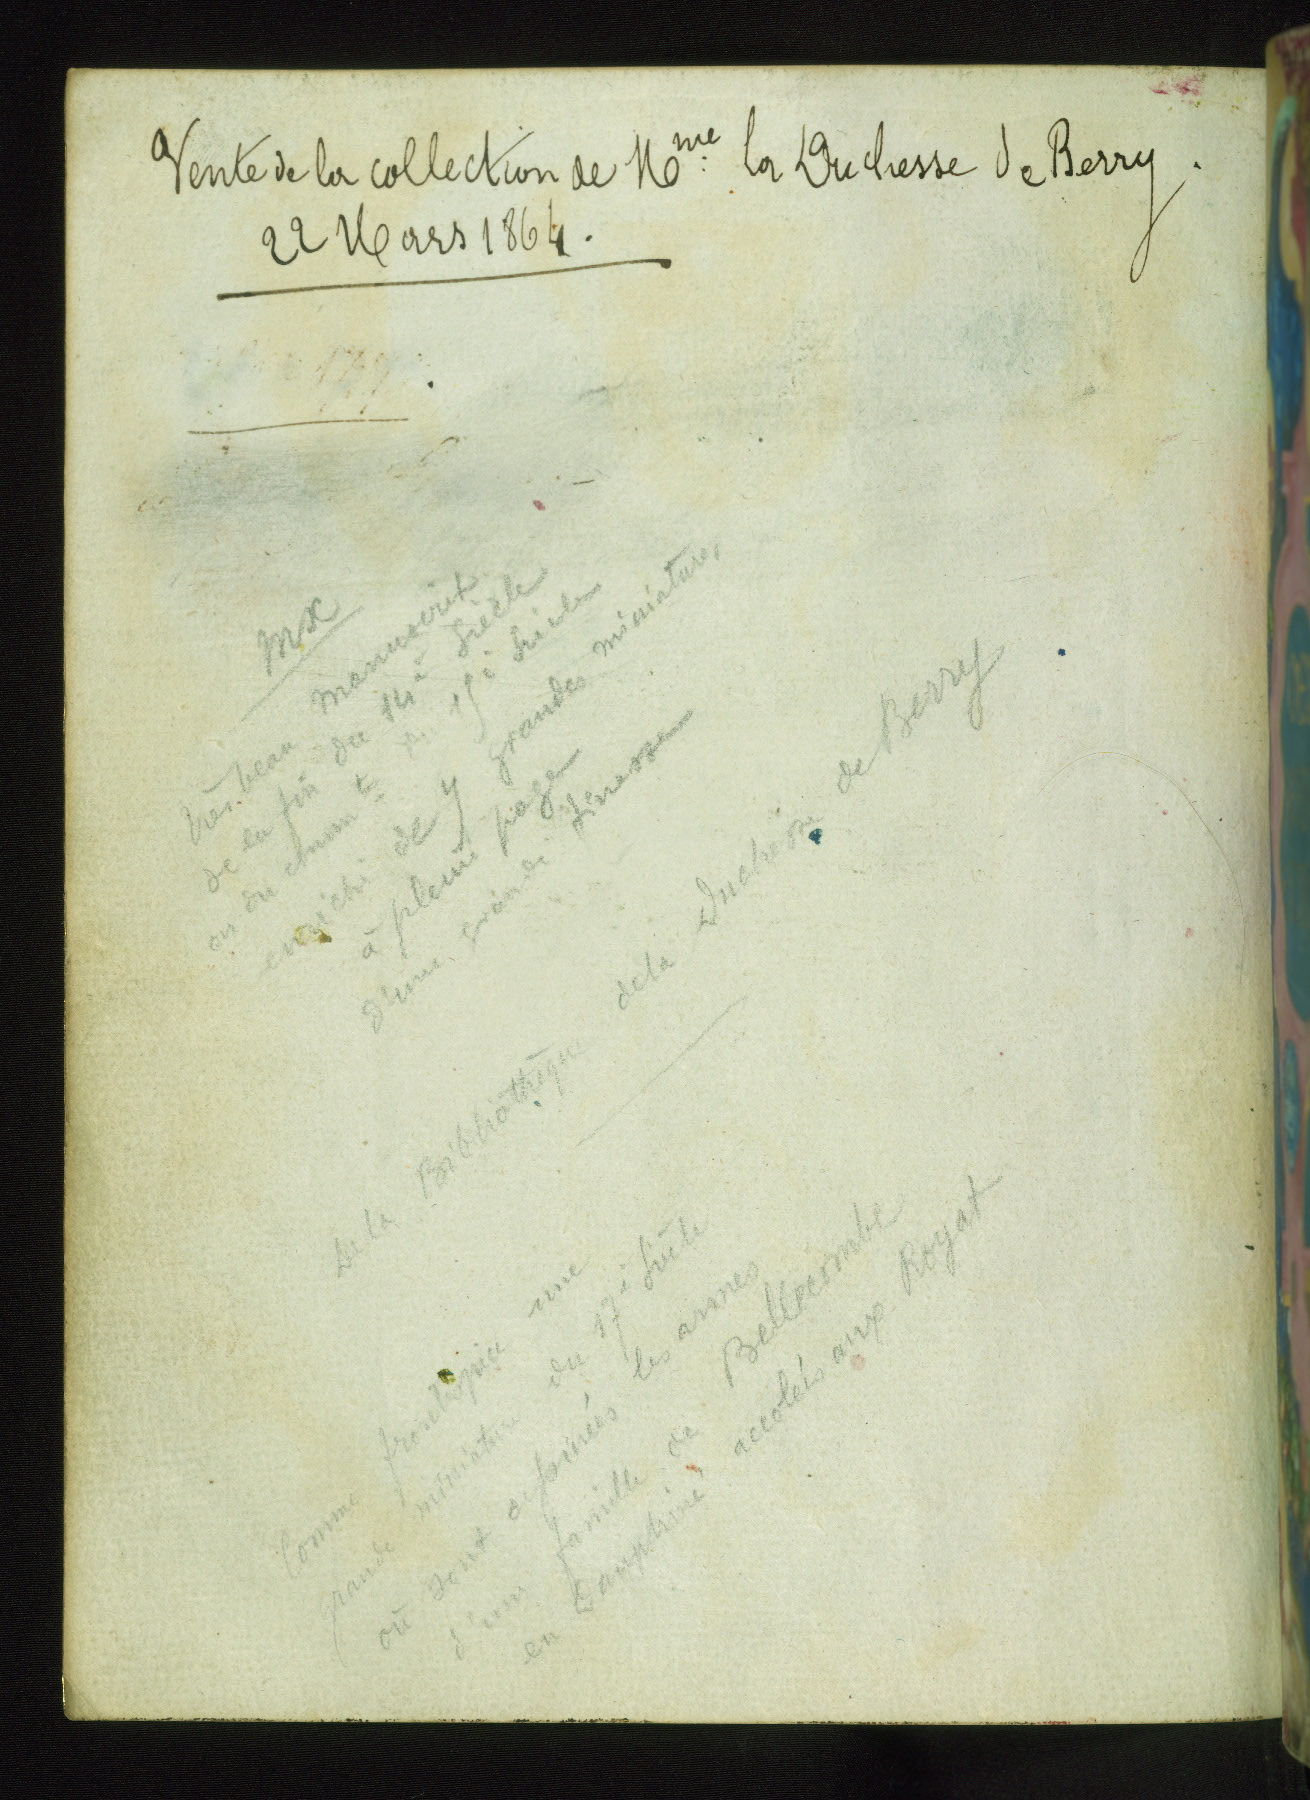 Vente de la collection de Mme. la Duchesse de Berry.
22 Mars 1864.
très beau manuscrit
de la fin du 14e Siècle
ou du du 15e Siècle
enrichi de grandes miniatures
à pleine page
d'une grande finesse
De la Bibliothèque de la Duchesse de Berry
Comme frontispice une
grande miniature du 17e Siècle
où sont dessinées les armes
d'une famille de Bellecombe
en Dauphiné accolés aux Royat